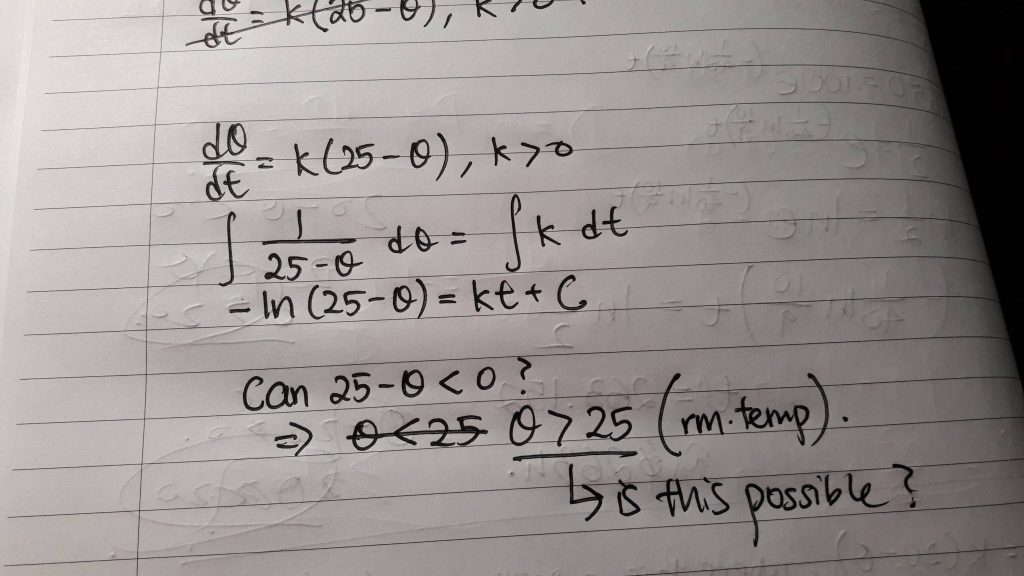 dθ/dt = k(25-θ), k>0
dθ/dt = k(25-θ), k>0
∫ 1/(25-θ) dθ = ∫ k dt
-ln(25-θ) = kt + C
Can 25-θ<0?
⇒ θ<25 θ>25 (rm.temp).
↳ is this possible?